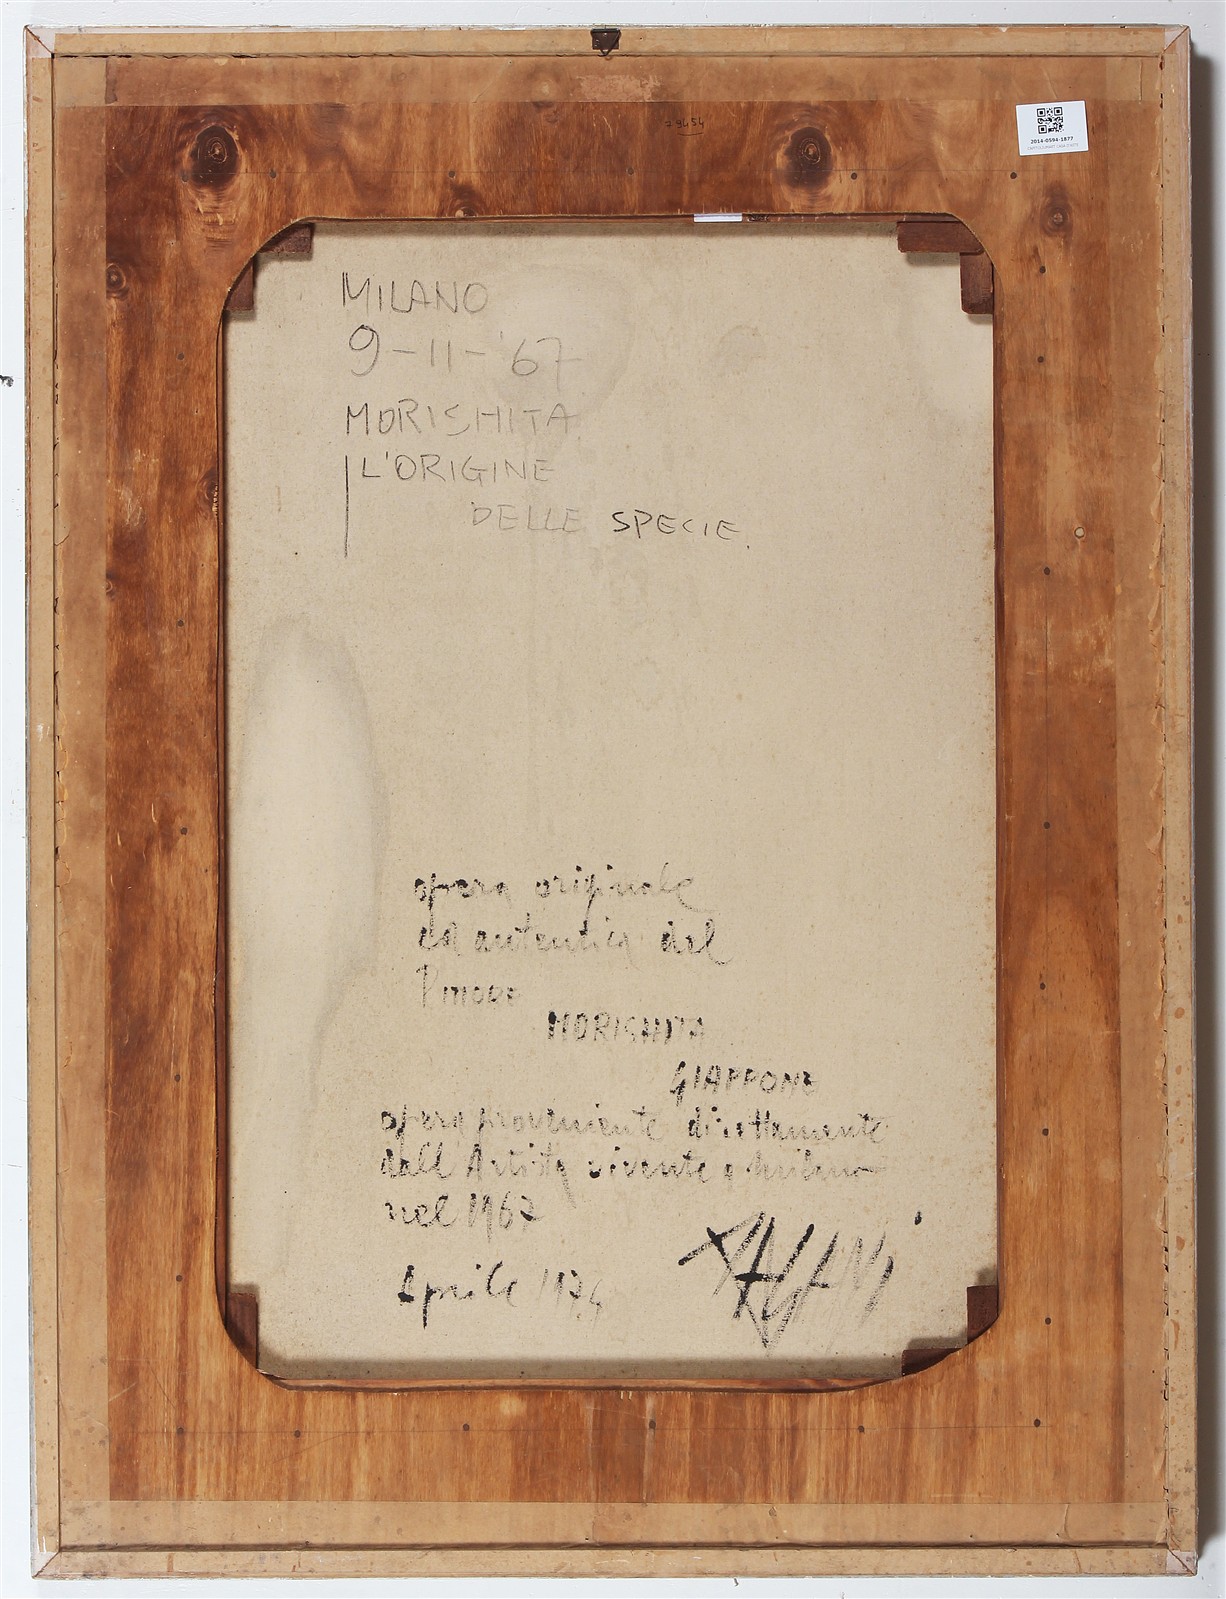 9454
2014-0594-1877
MILANO
9-11-'67
MORISHITA
L'ORIGINE
DELLE SPECIE.
opera originale
ed autentica del
Pittore
MORISHITA
GIAPPONE
opera proveniente direttamente
dall Artista vivente a Milano
nel 1967
Aprile 1974